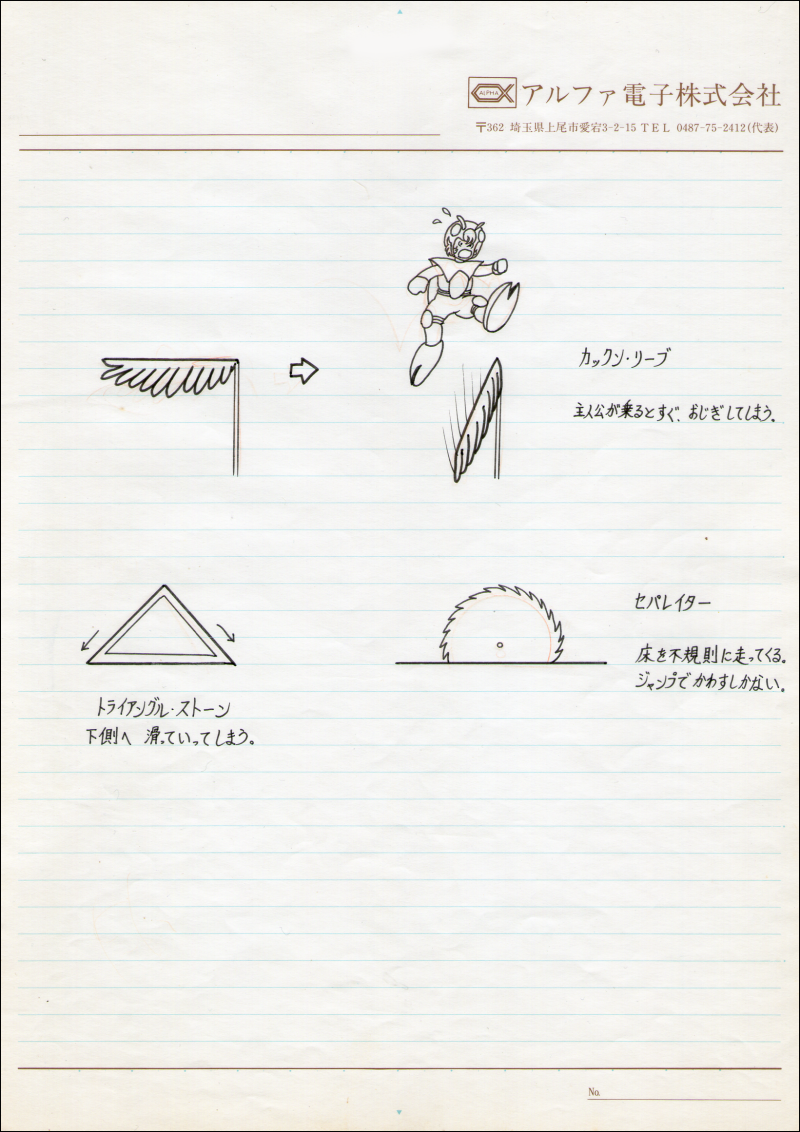 ALPHA アルファ電子株式会社
〒362 埼玉県上尾市愛宕3-2-15 TEL 0487-75-2412(代表)
カックン・リーブ
主人公が乗るとすぐ、おじぎしてしまう。
セパレイター
床を不規則に走ってくる。
ジャンプでかわすしかない。
トライアングル・ストーン
下側へ 滑っていってしまう。
No.